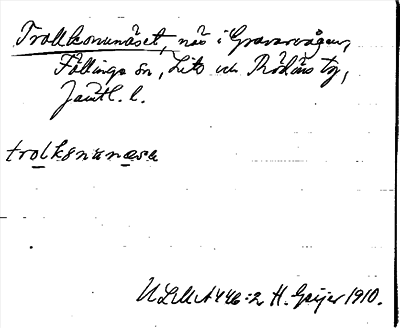 Trollkonunäset, näs i Gravarvågen,
Föllinge sn, Lits och Rödöns tg,
Jämtl. l.
trolkønunæsə
ULMA 446:2 H. Geijer 1910.